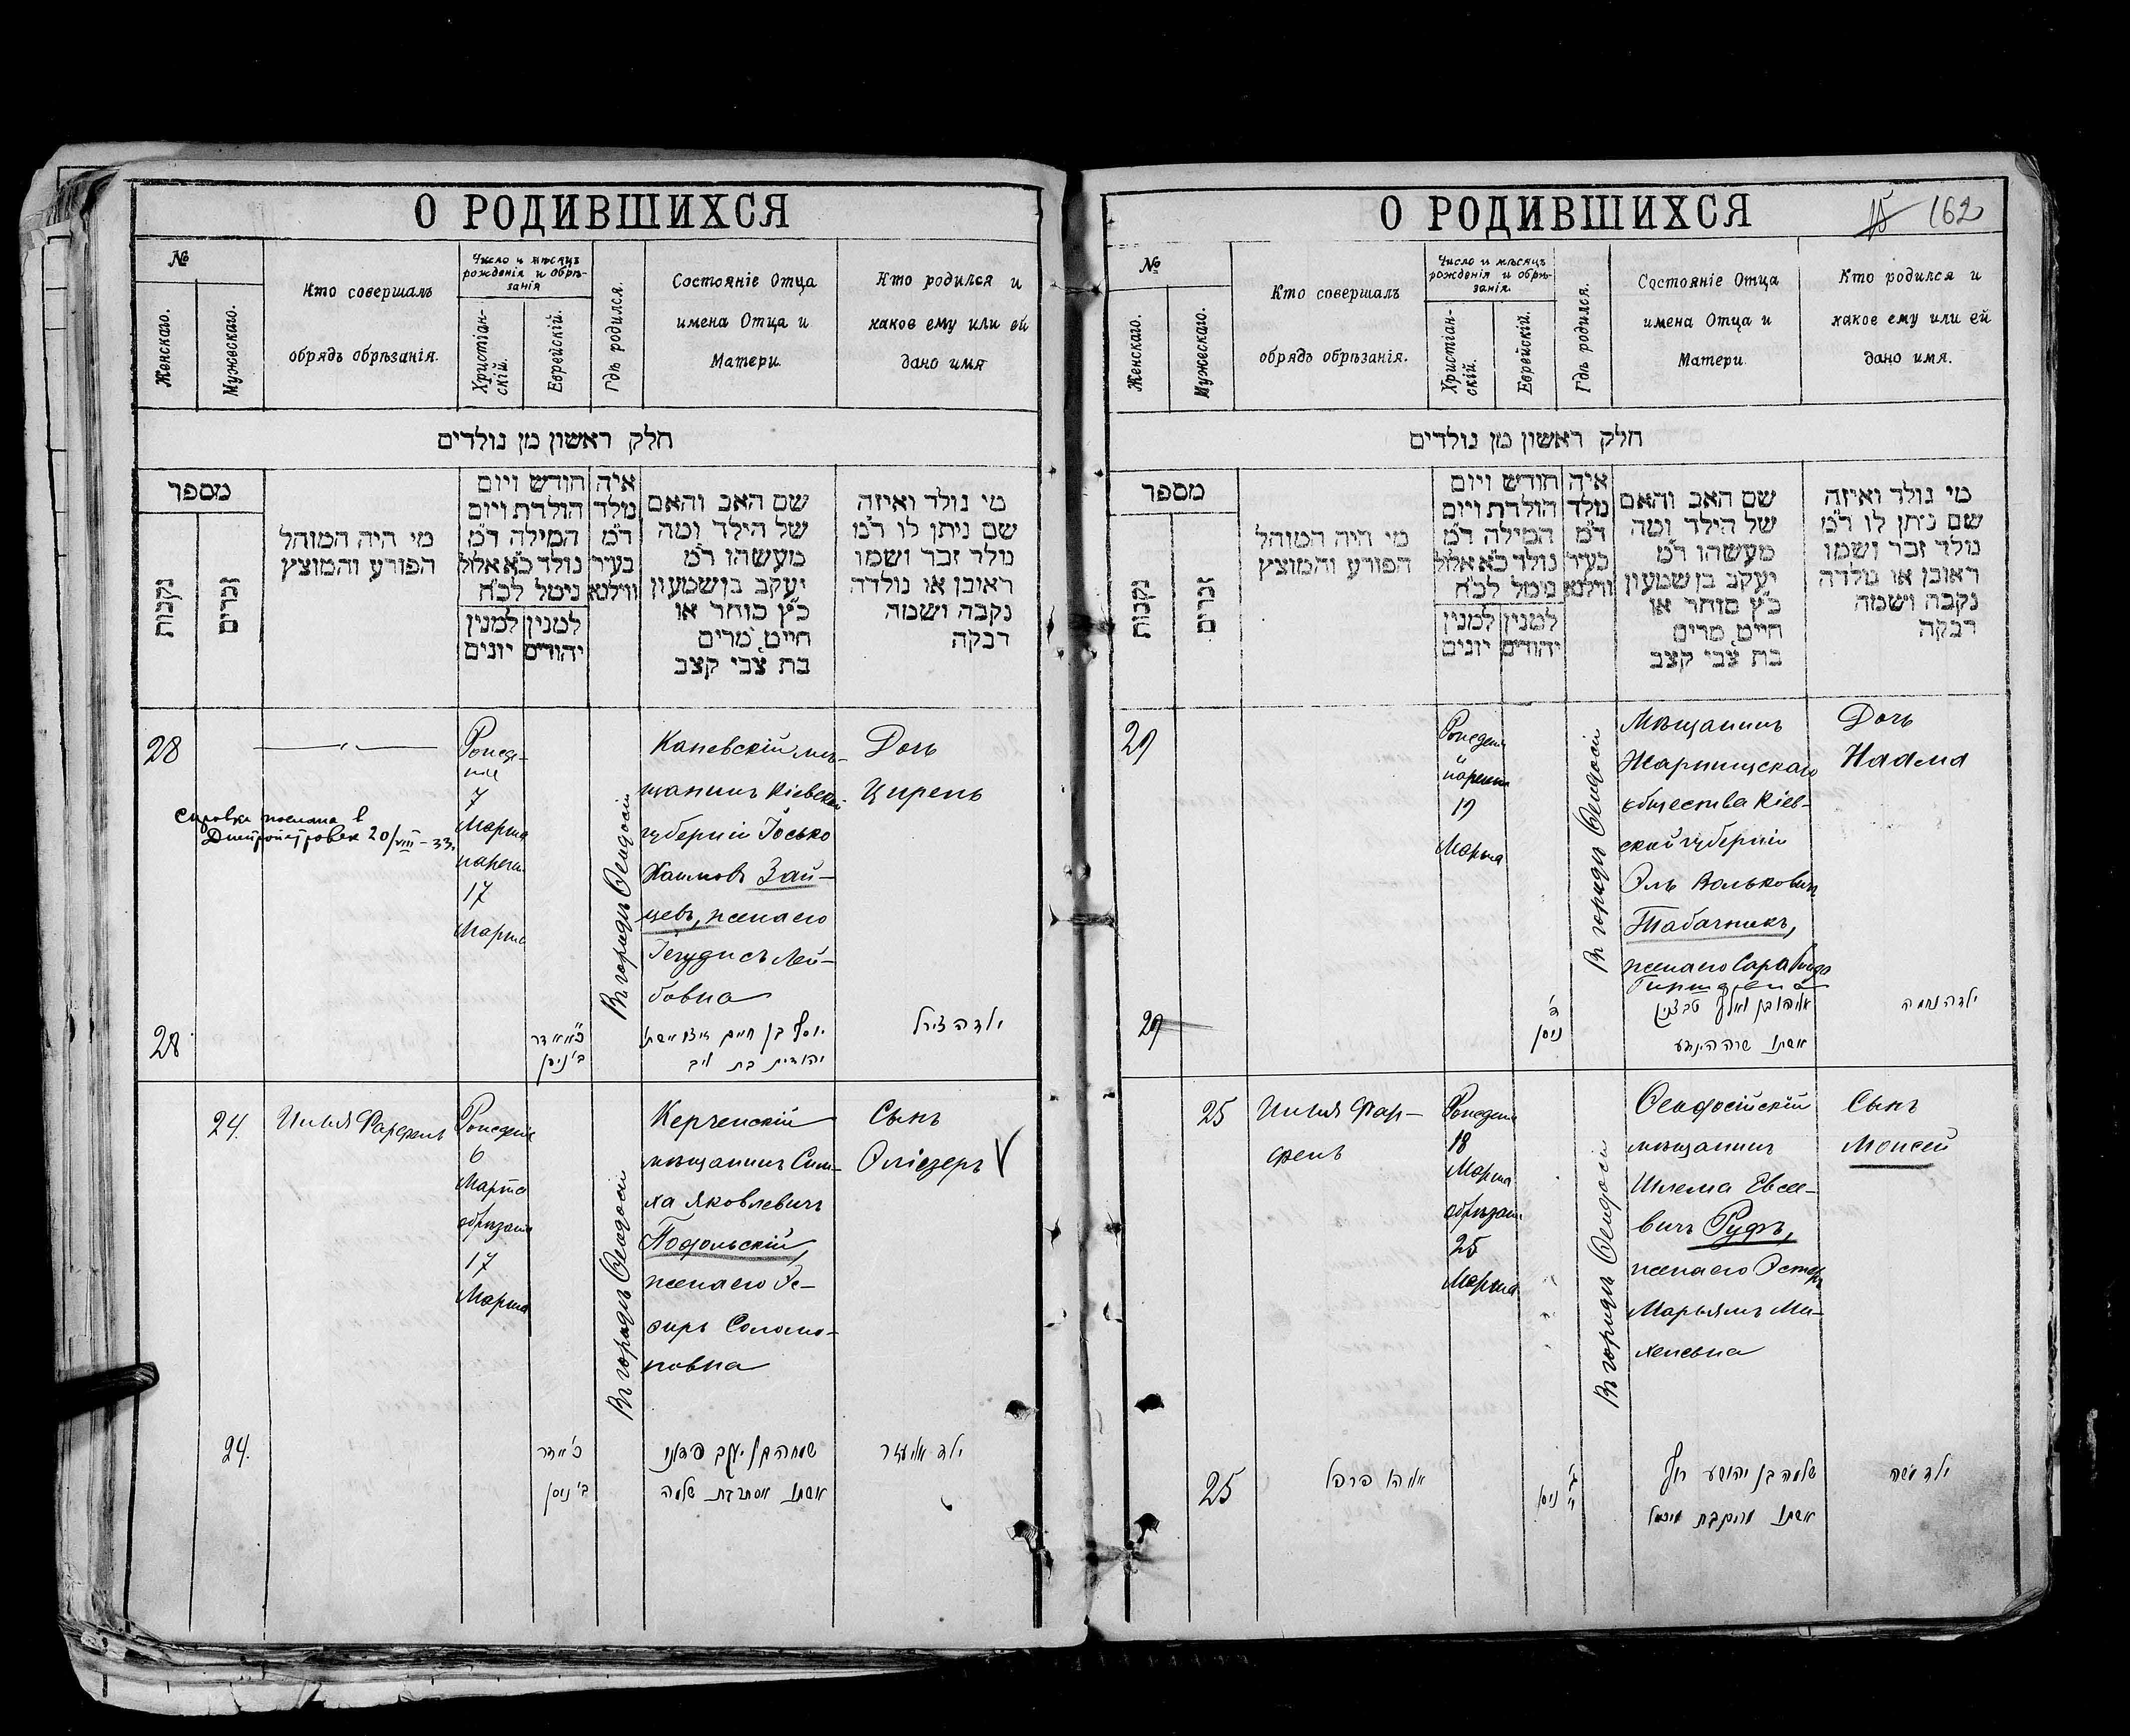 О РОДИВШИХСЯ
№
Женскаго.
Мужескаго.
Кто совершалъ
обрядъ обрѣзанія.
Число и мѣсяцъ
рожденія и обрѣ-
занія
Христіан-
скій.
Еврейскій.
Гдѣ родился.
Состояніе Отца
имена Отца и
Матери.
Кто родился и
какое ему или ей
дано имя
חלק ראשון מן נולדים
מספר
נקבות
זכרים
מי היה המוהל
הפורע והמוצץ
חודש ויום
הולדת ויום
המילה ד״מ
נולד כ״א אלול
נימל לכ״ח
למנין
יהודים
למנין
יונים
איה
נולד
ד״מ
בעיר
ווילנא
שם האב והאם
של הילד ומה
מעשהו ד״מ
יעקב בן שמעון
כ״ץ סוחר או
חייט, מרים
בת צבי קצב
מי נולד ואיזה
שם ניתן לו ד״מ
נולד זכר ושמו
ראובן או נולדה
נקבה ושמה
רבקה
28
Справка послана в
Днепропетровск 20/VIII-33.
7
Марта
17
Марта
Въ городѣ Ѳеодосіи
Каневскій мѣ-
щанинъ Кіевской
губерніи Іосько
Хаимовъ Зай-
цевъ, жена его
Іегудисъ Лей-
бовна
Дочь
Цирель
28
כ״א אדר
ב׳ ניסן
יוסף בן חיים
יהודית בת ליב
ילדה צירל
24.
Рожденіе
6
Марта
обрѣзаніе
17
Марта
Въ городѣ Ѳеодосіи
Керченскій
мѣщанинъ Сим-
ха Яковлевичъ
Подольскій,
жена его Эс-
фирь Соломо-
новна
Сынъ
Эліезеръ V
24.
כ׳ אדר
ב׳ ניסן
שמחה בן יעקב
אשתו אסתר בת שלמה
ילד אליעזר
О РОДИВШИХСЯ
15 162
№
Женскаго.
Мужескаго.
Кто совершалъ
обрядъ обрѣзанія.
Число и мѣсяцъ
рожденія и обрѣ-
занія.
Христіан-
скій.
Еврейскій.
Гдѣ родился.
Состояніе Отца
имена Отца и
Матери.
Кто родился и
какое ему или ей
дано имя.
חלק ראשון מן נולדים
מספר
נקבות
זכרים
מי היה המוהל
הפורע והמוצץ
חודש ויום
הולדת ויום
המילה ד״מ
נולד כ״א אלול
נימל לכ״ח
למנין
יהודים
למנין
יונים
איה
נולד
ד״מ
בעיר
ווילנא
שם האב והאם
של הילד ומה
מעשהו ד״מ
יעקב בן שמעון
כ״ץ סוחר או
חייט, מרים
בת צבי קצב
מי נולד ואיזה
שם ניתן לו ד״מ
נולד זכר ושמו
ראובן או נולדה
נקבה ושמה
רבקה
29
19
Марта
Въ городѣ Ѳеодосіи
Мѣщанинъ
общества Кіев-
ской губерніи
Эль Вольковичъ
Табачникъ,
жена его Сара
Дочь
29
ניסן
אשתו שרה
ילדה נחמה
25
Рожденіе
18
Марта
обрѣзаніе
25
Марта
Въ городѣ Ѳеодосіи
Ѳеодосійскій
мѣщанинъ
Шлема Евсе-
вичъ Руфъ,
жена его Эстеръ
Марьямъ Ми-
хелевна
Сынъ
Моисей
25
ניסן
שלמה בן יהושע רוף
אשתו מרים בת מיכאל
ילד משה